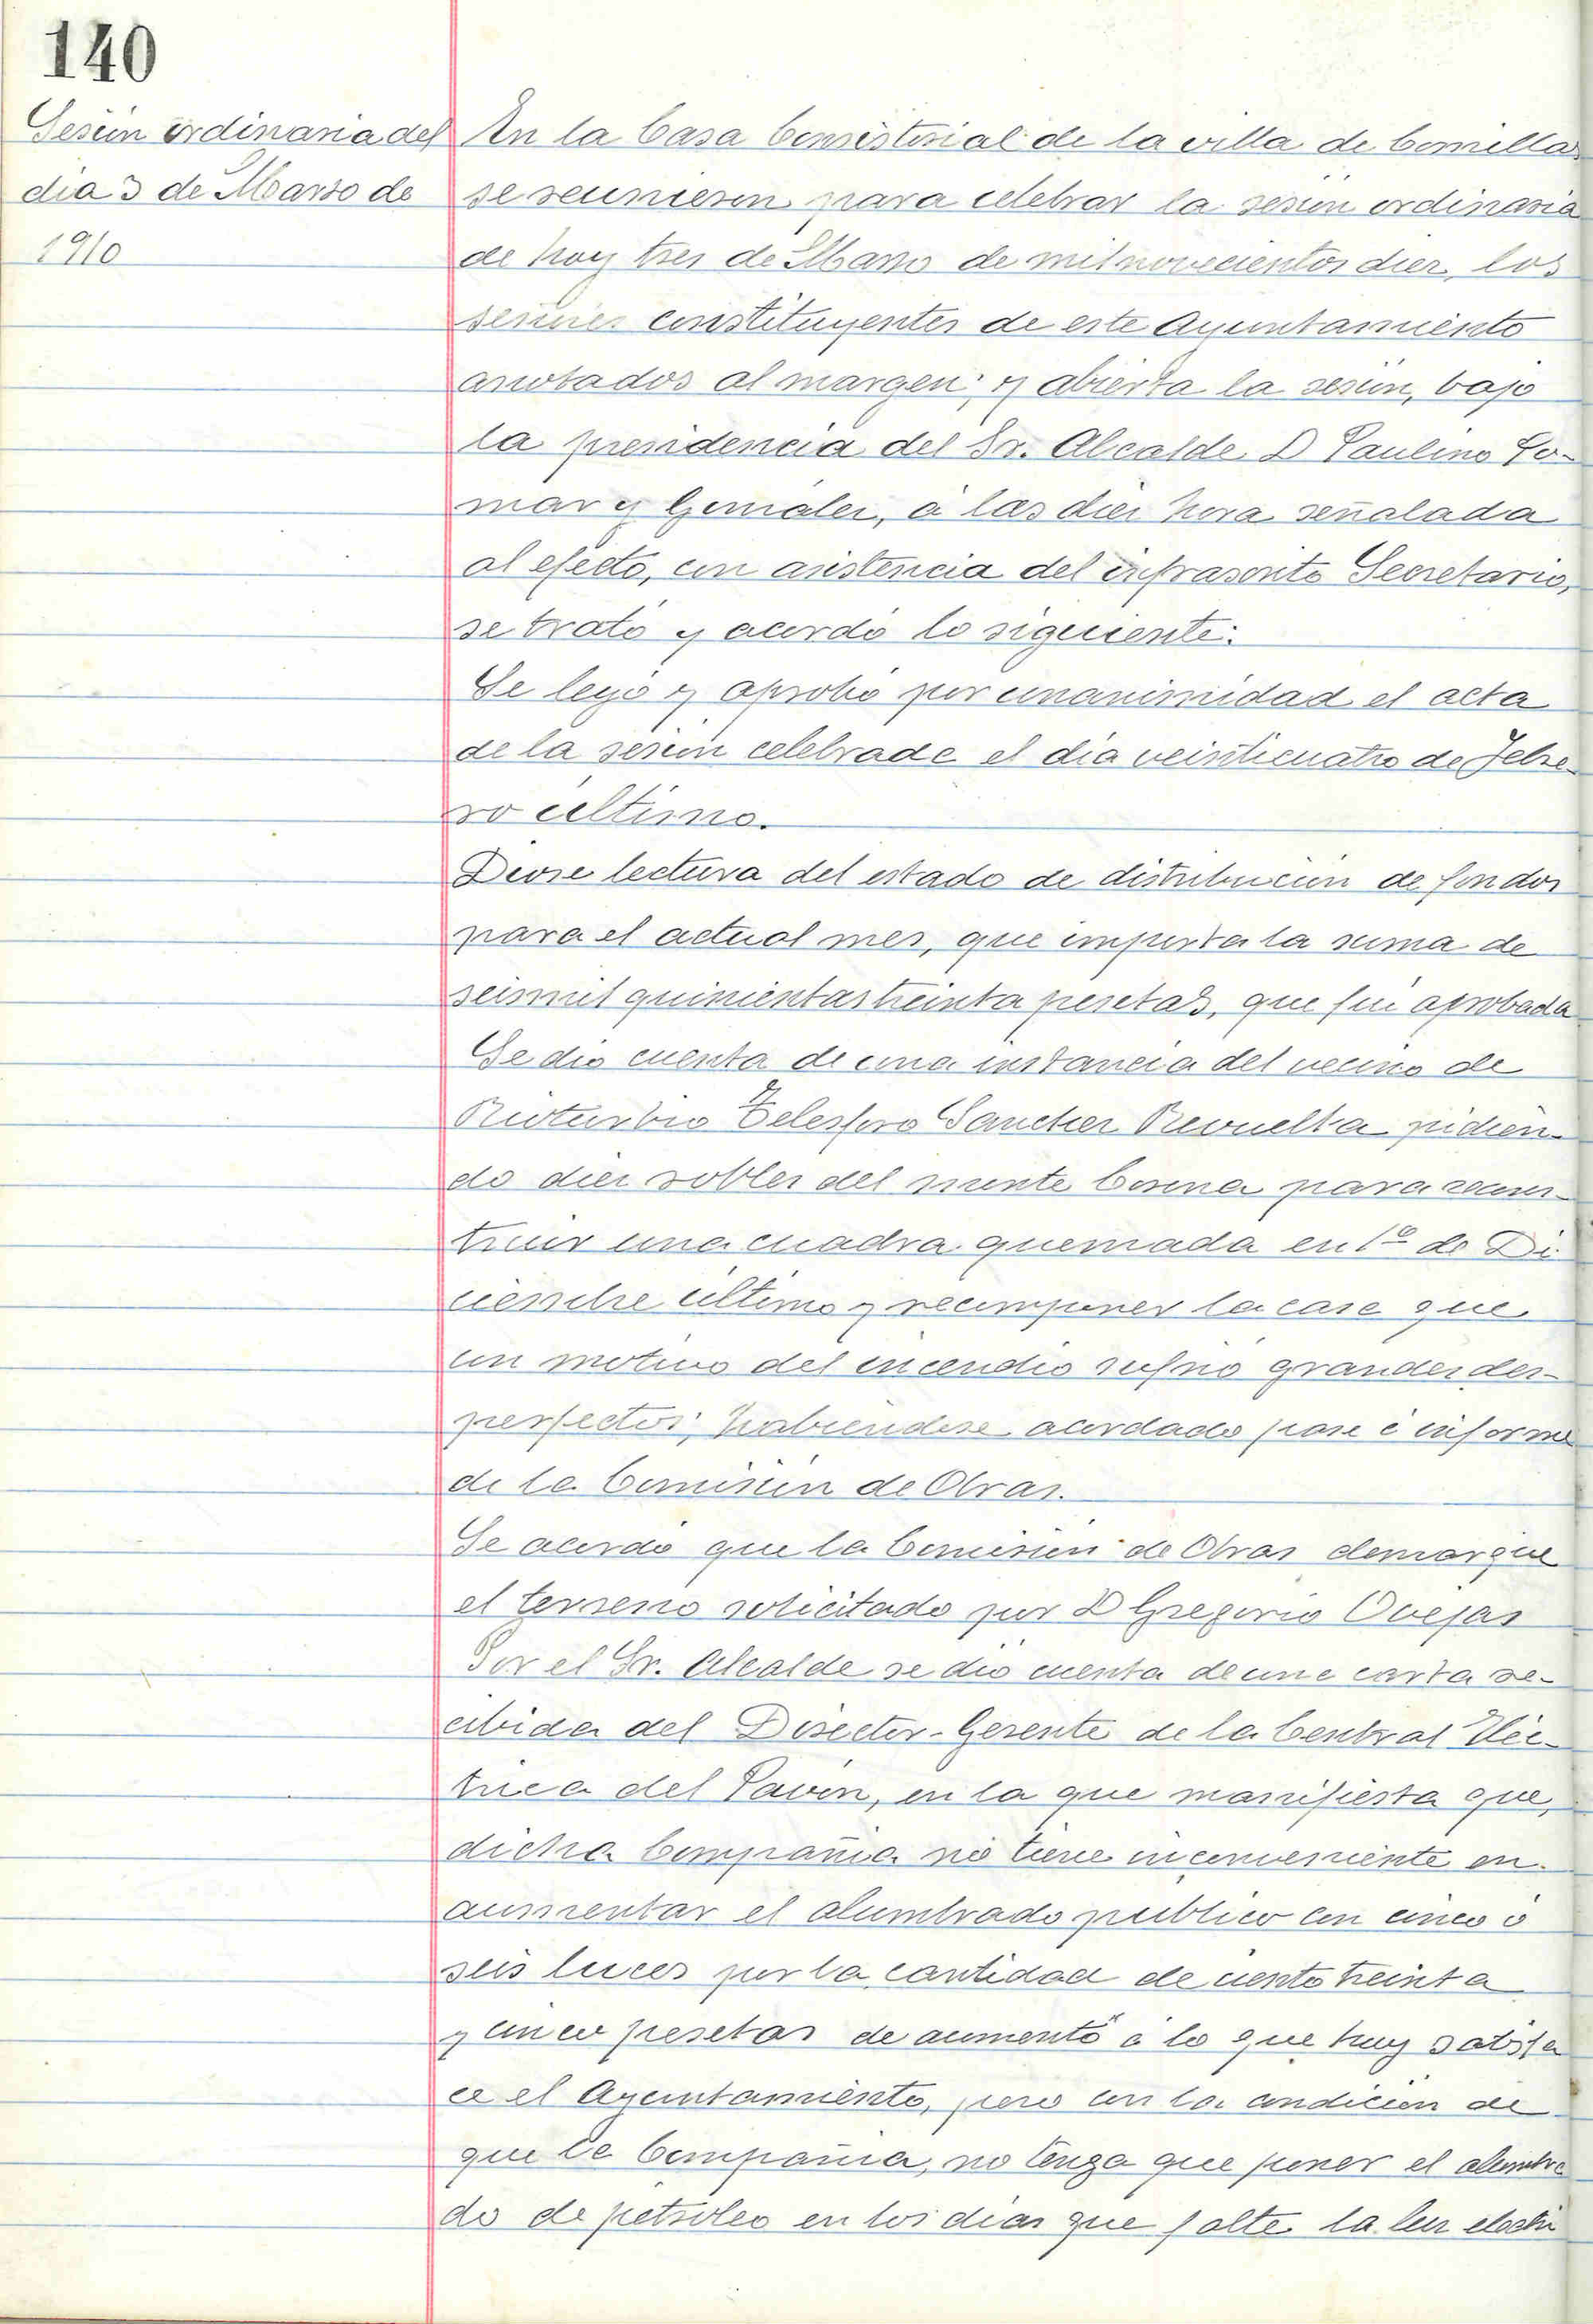 140
Sesión ordinaria del
dia 3 de Marzo de
1910
En la Casa Consistorial de la villa de Comillas
se reunieron para celebrar la sesión ordinaria
de hoy tres de Marzo de mil novecientos diez, los
señores constituyentes de este Ayuntamiento
anotados al margen; y abierta la sesión, bajo
la presidencia del Sr. Alcalde D Paulino
mar y González, á las diez hora señalada
al efecto, con asistencia del infrascrito Secretario,
se trató y acordó lo siguiente:
Se leyó y aprobó por unanimidad el acta
de la sesión celebrada el día veinticuatro de Febre-
ro último.
Diose lectura del estado de distribución de fondos
para el actual mes, que importa la suma de
seismil quinientas treinta pesetas, que fué aprobada
Se dio cuenta de una instancia del vecino de
Rioturbio Telesforo Sanchez Revuelta pidien-
do diez robles del monte Corona para recons-
truir una cuadra quemada en 1º de Di-
ciembre último y recomponer la casa que
con motivo del incendio sufrió grandes des-
perfectos; habiendose acordado pase á informe
de la Comisión de Obras.
Se acordó que la Comisión de Obras demarque
el terreno solicitado por D Gregorio Ovejas
Por el Sr. Alcalde se dio cuenta de una carta re-
cibida del Director-Gerente de la Central Eléc-
trica del Pavón, en la que manifiesta que,
dicha Compañia no tiene inconveniente en
aumentar el alumbrado publico con cinco ó
seis luces por la cantidad de ciento treinta
y cinco pesetas de aumento á lo que hoy satisfa
ce el Ayuntamiento, pero con la condición de
que la Compañia, no tenga que poner el alumbra
do de petroleo en los dias que falte la luz electri